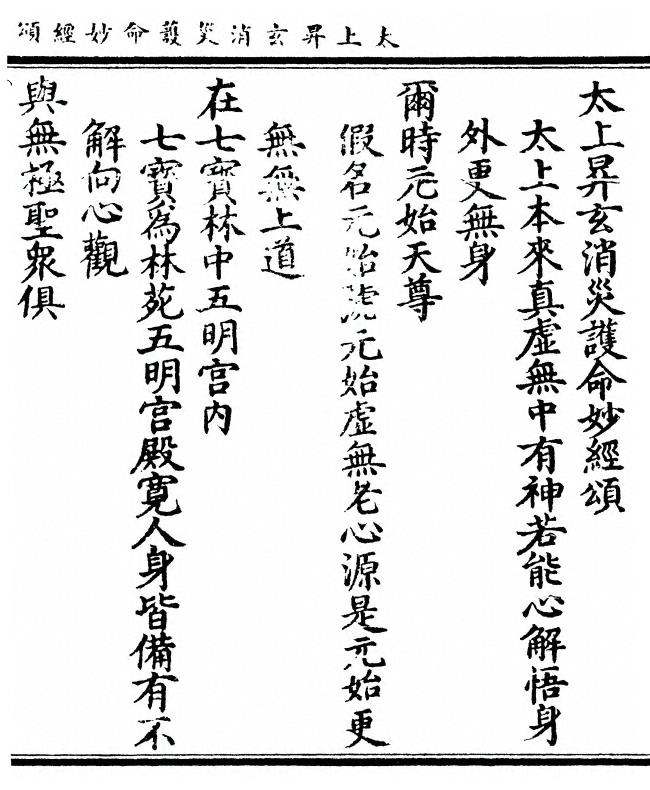 太上昇玄消災護命妙經頌
太上昇玄消災護命妙經頌
太上本來真虛無中有神若能心解悟身
外更無身
爾時元始天尊
假名元始號元始虛無老心源是元始更
無無上道
在七寳林中五明宫内
七寳為林苑五明宫殿寛人身皆備有不
解向心觀
與無極聖衆俱